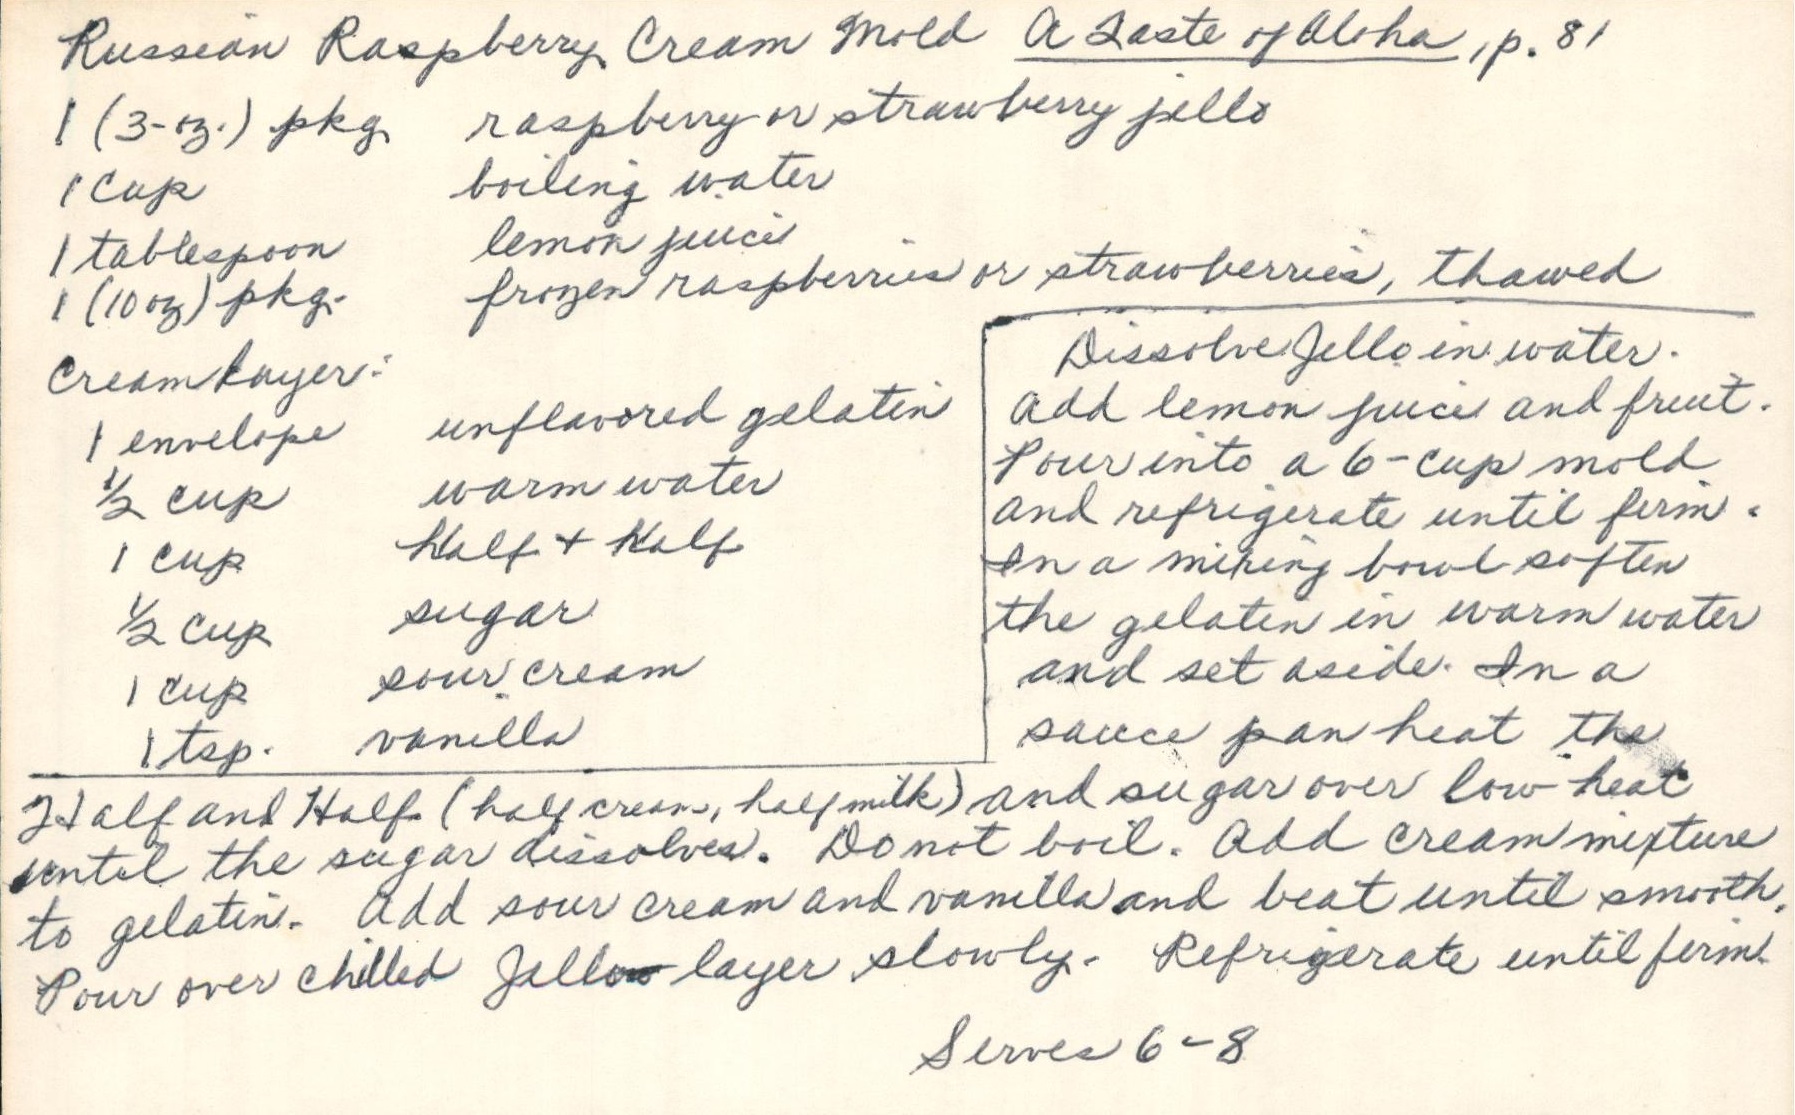 Russian Raspberry Cream Mold A Taste of Aloha, p. 81
1 (3-oz.) pkg. raspberry or strawberry jello
1 cup boiling water
1 tablespoon lemon juice
1 (10 oz) pkg. frozen raspberries or strawberries, thawed
Cream Layer:
1 envelope unflavored gelatin
1/2 cup warm water
1 cup Half + Half
1/2 cup sugar
1 cup sour cream
1 tsp. vanilla
Dissolve Jello in water.
Add lemon juice and fruit.
Pour into a 6-cup mold
and refrigerate until firm.
In a mixing bowl soften
the gelatin in warm water
and set aside. In a
sauce pan heat the
Half and Half (half cream, half milk) and sugar over low heat
until the sugar dissolves. Do not boil. Add cream mixture
to gelatin. Add sour cream and vanilla and beat until smooth.
Pour over chilled Jello layer slowly. Refrigerate until firm.
Serves 6-8